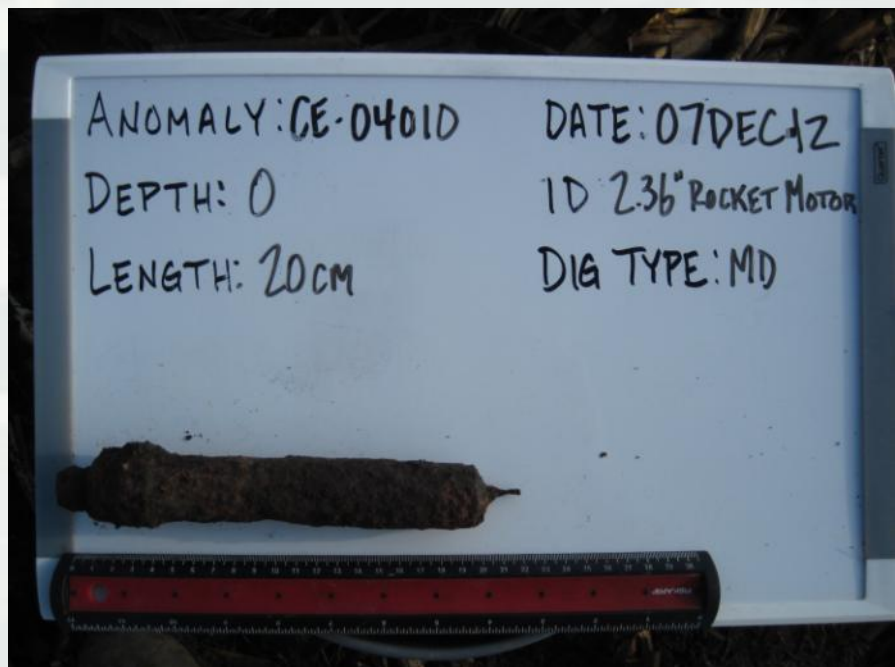 ANOMALY: CE-0401D
DEPTH: 0
LENGTH: 20CM
DATE: 07DEC12
ID 2.36" ROCKET MOTOR
DIG TYPE: MD